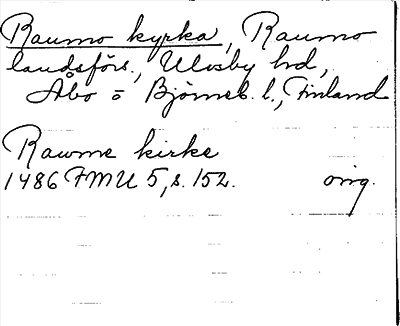 Raumo kyrka, Raumo
landsförs., Ulvsby hd,
Åbo o Björneb. l., Finland
Rawme kirke
1486 FMU 5, s. 152. orig.